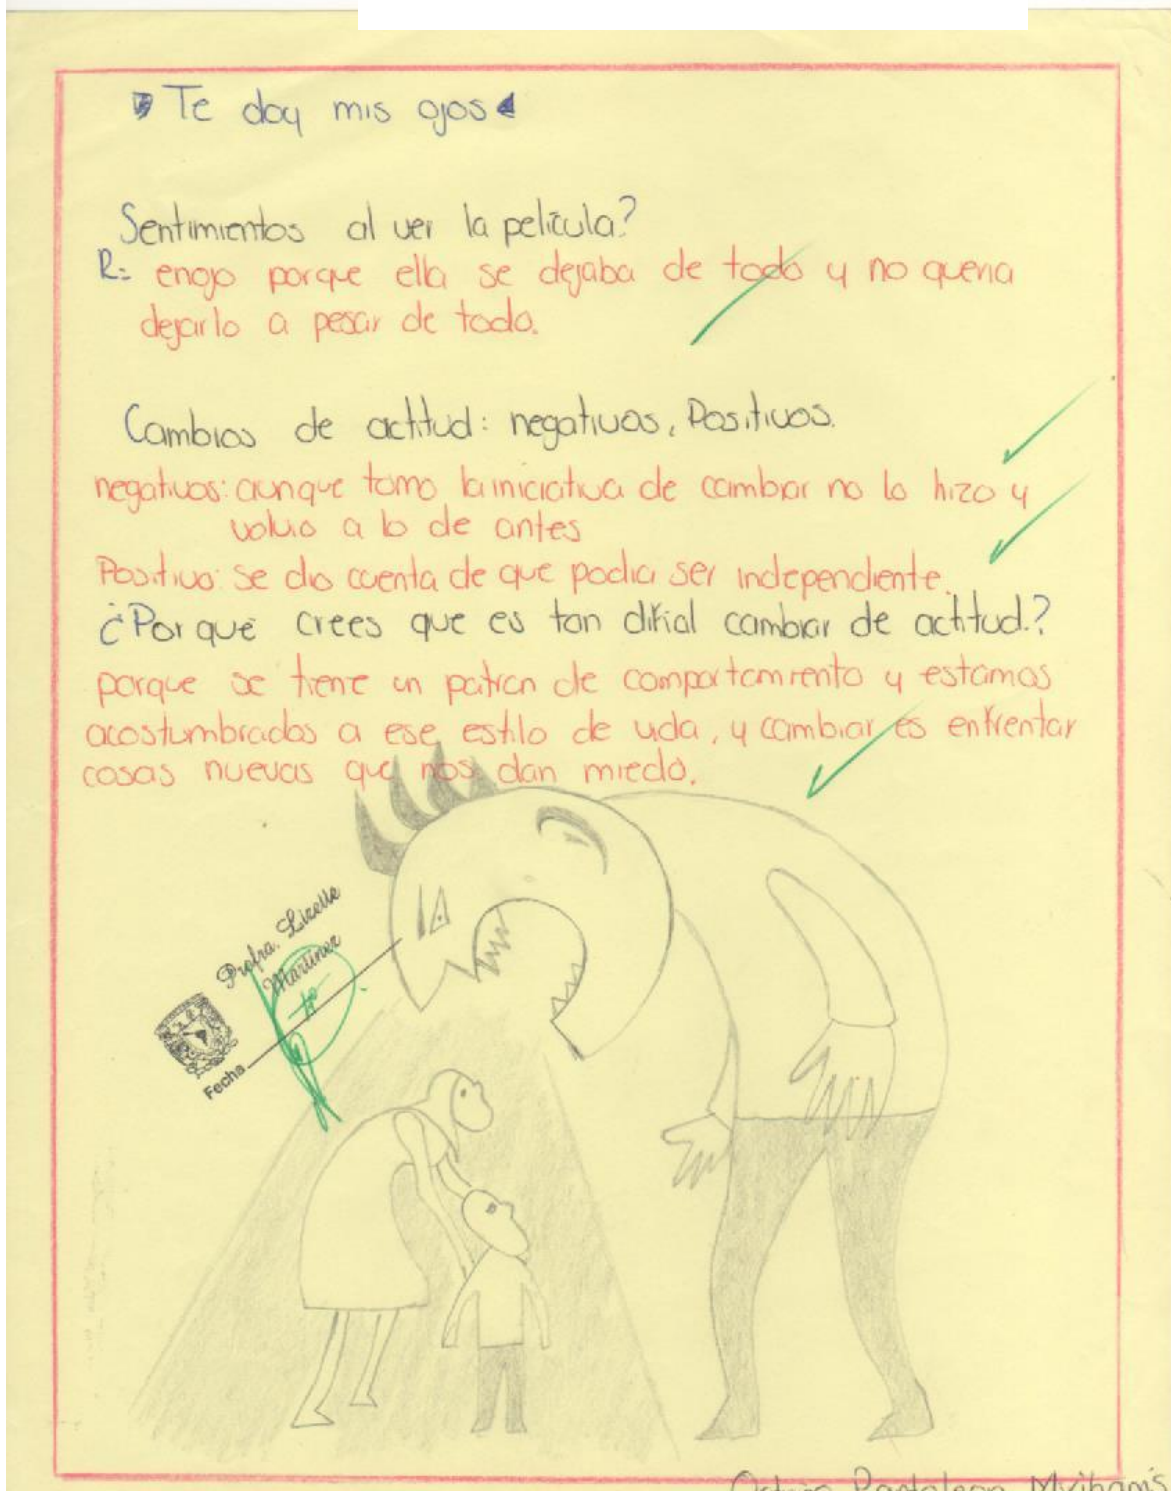 Te doy mis ojos
Sentimientos al ver la pelicula?
R= enojo porque ella se dejaba de todo y no queria
dejarlo a pesar de todo.
Cambios de actitud: negativos, Positivos.
negativos: aunque tomo la iniciativa de cambiar no lo hizo y
volvio a lo de antes
Positivo: se dio cuenta de que podia ser independiente.
¿Por qué crees que es tan dificial cambiar de actitud.?
porque se tiene un patron de comportamiento y estamos
acostumbrados a ese estilo de vida, y cambiar es enfrentar
cosas nuevas que nos dan miedo.
Profra. Lizette
Martínez
Fecha
Pantaleon